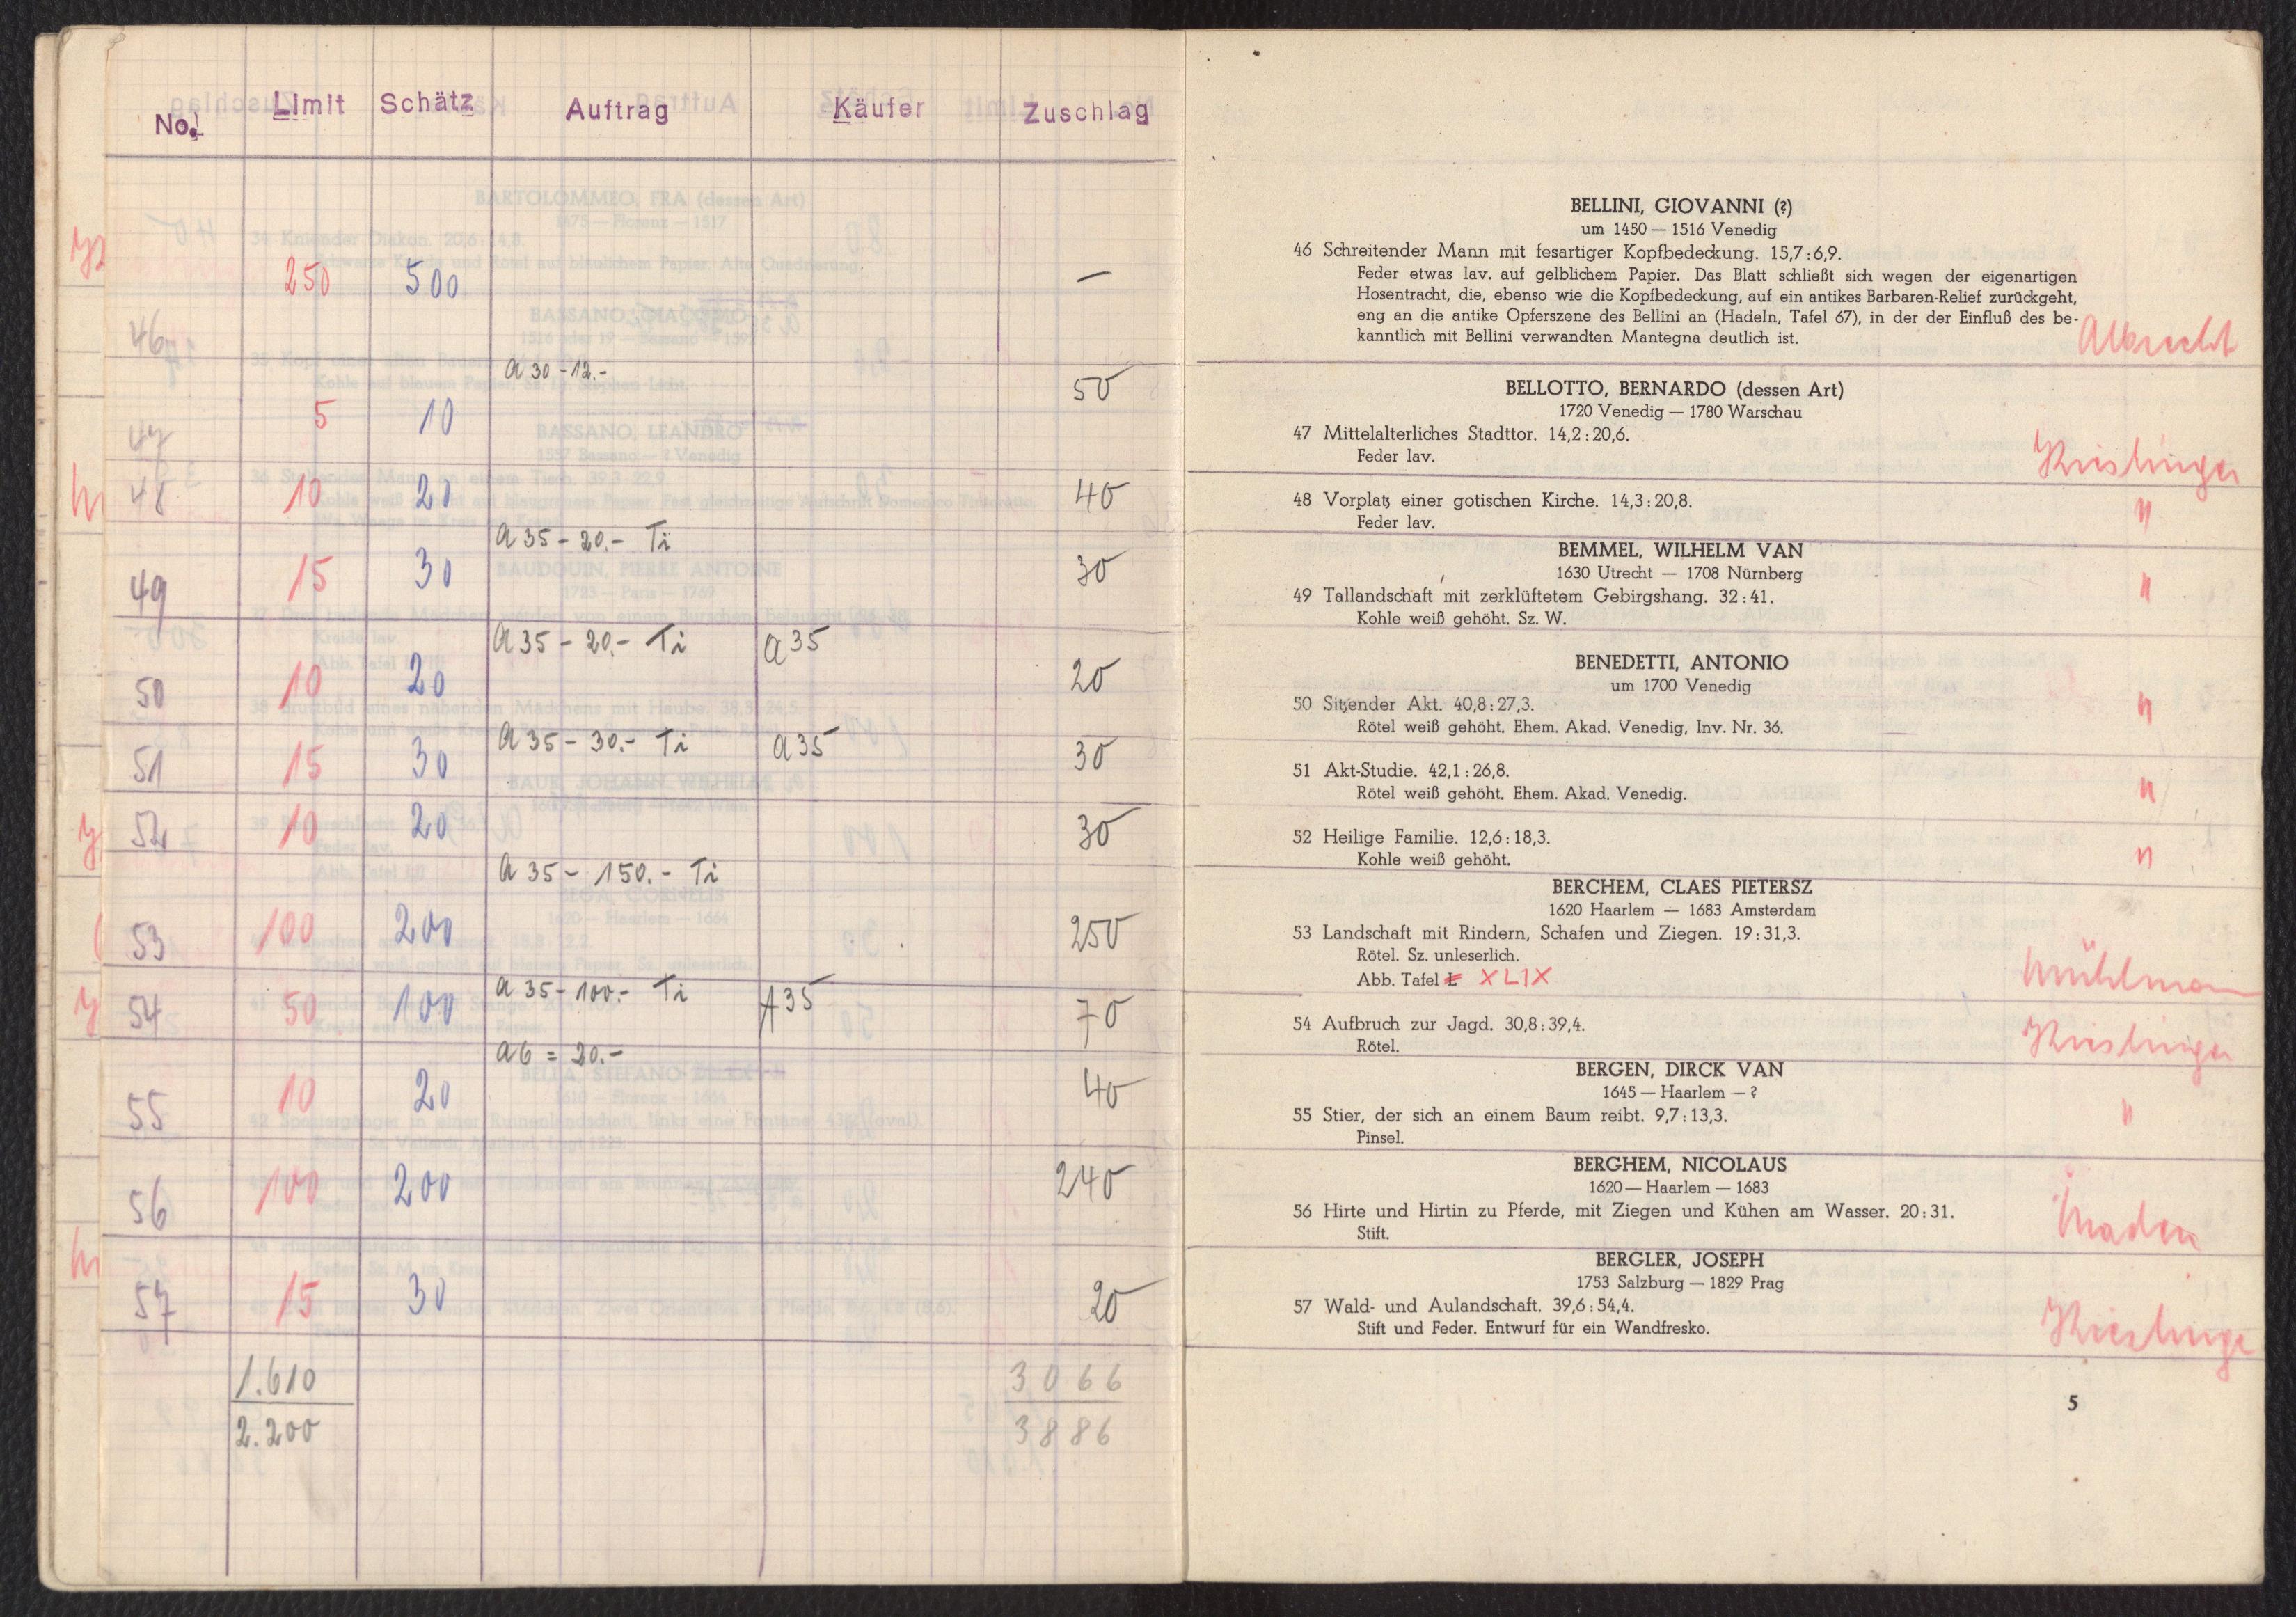 No. Limit Schätz Auftrag Käufer Zuschlag
46 250 500 —
47 5 10 a 30 - 12.- 50
48 10 20 40
49 15 30 a 35 - 20.- Ti 30
50 10 20 a 35 - 20.- Ti a 35 20
51 15 30 a 35 - 30.- Ti a 35 30
52 10 20 30
53 100 200 a 35 - 150.- Ti 250
54 50 100 a 35 - 100.- Ti A 35 70
55 10 20 a 6 = 20.- 40
56 100 200 240
57 15 30 20
1.610 3066
2.200 3886
BELLINI, GIOVANNI (?)
um 1450 — 1516 Venedig
46 Schreitender Mann mit fesartiger Kopfbedeckung. 15,7 : 6,9.
Feder etwas lav. auf gelblichem Papier. Das Blatt schließt sich wegen der eigenartigen
Hosentracht, die, ebenso wie die Kopfbedeckung, auf ein antikes Barbaren-Relief zurückgeht,
eng an die antike Opferszene des Bellini an (Hadeln, Tafel 67), in der der Einfluß des be-
kanntlich mit Bellini verwandten Mantegna deutlich ist.
Albrecht
BELLOTTO, BERNARDO (dessen Art)
1720 Venedig — 1780 Warschau
47 Mittelalterliches Stadttor. 14,2 : 20,6.
Feder lav.
Kieslinger
48 Vorplatz einer gotischen Kirche. 14,3 : 20,8.
Feder lav.
"
BEMMEL, WILHELM VAN
1630 Utrecht — 1708 Nürnberg
49 Tallandschaft mit zerklüftetem Gebirgshang. 32 : 41.
Kohle weiß gehöht. Sz. W.
"
BENEDETTI, ANTONIO
um 1700 Venedig
50 Sitzender Akt. 40,8 : 27,3.
Rötel weiß gehöht. Ehem. Akad. Venedig, Inv. Nr. 36.
"
51 Akt-Studie. 42,1 : 26,8.
Rötel weiß gehöht. Ehem. Akad. Venedig.
"
52 Heilige Familie. 12,6 : 18,3.
Kohle weiß gehöht.
"
BERCHEM, CLAES PIETERSZ
1620 Haarlem — 1683 Amsterdam
53 Landschaft mit Rindern, Schafen und Ziegen. 19 : 31,3.
Rötel. Sz. unleserlich.
Abb. Tafel L XLIX
Mühlmann
54 Aufbruch zur Jagd. 30,8 : 39,4.
Rötel.
Kieslinger
BERGEN, DIRCK VAN
1645 — Haarlem — ?
55 Stier, der sich an einem Baum reibt. 9,7 : 13,3.
Pinsel.
"
BERGHEM, NICOLAUS
1620 — Haarlem — 1683
56 Hirte und Hirtin zu Pferde, mit Ziegen und Kühen am Wasser. 20 : 31.
Stift.
BERGLER, JOSEPH
1753 Salzburg — 1829 Prag
57 Wald- und Aulandschaft. 39,6 : 54,4.
Stift und Feder. Entwurf für ein Wandfresko.
Kieslinge
5